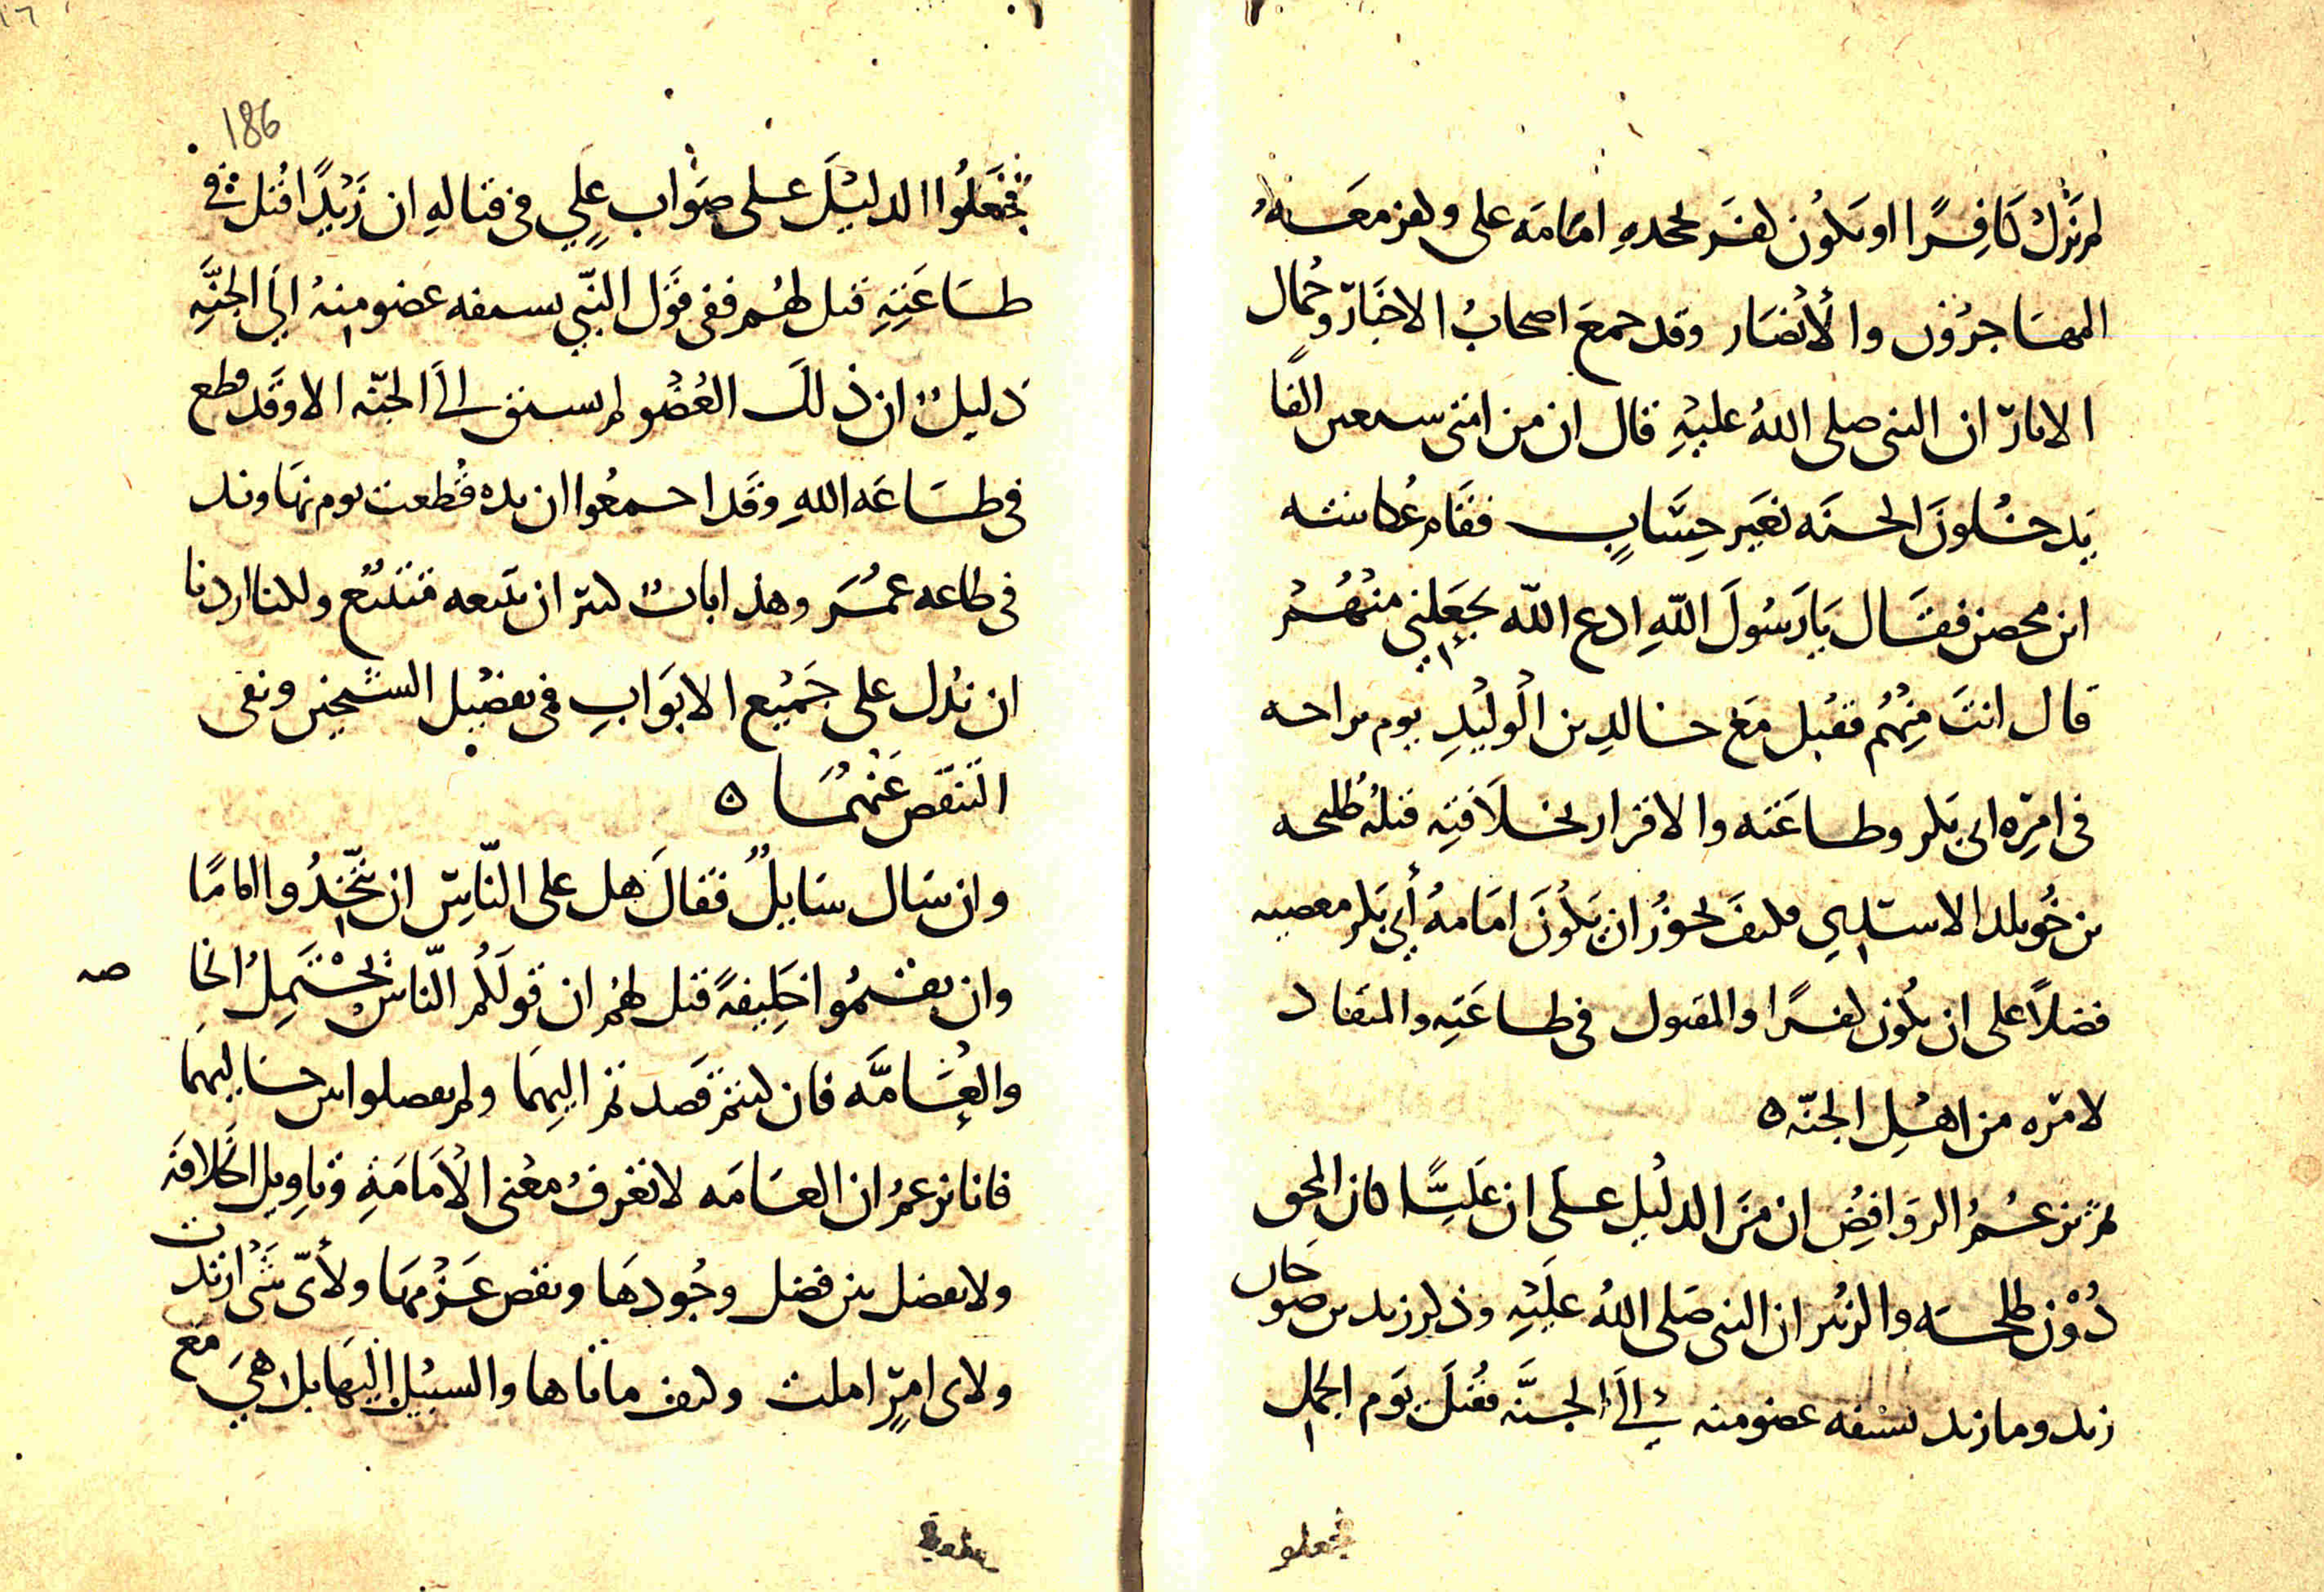 لم تزل كافرا او يكون كفر بجحده امامة على ولعن معه
المهاجرون والأنصار وقد جمع اصحاب الاخبار وحمال
الاثار ان النبى صلى الله عليه قال ان من امتى سبعين الفا
يدخلون الجنه بغير حساب فقام عكاشه
ابن محصن فقال يا رسول الله ادع الله يجعلني منهم
قال انت منهم فقتل مع خالد بن الوليد يوم بزاخه
فى امره ابى بكر وطاعته والاقرار بخلافته قتله طليحه
بن خويلد الاسدي فكيف يجوز ان يكون امامه أبي بكر معصيه
فضلا على ان يكون كفرا والمقتول فى طاعته والمنقاد
لامره من اهل الجنه ه
ثم تزعم الروافض ان من الدليل على ان عليا كان المحق
دون طلحه والزبير ان النبى صلى الله عليه وذكر زيد بن صوحان
زيد وما زيد يسبقه عضو منه الى الجنه فقتل يوم الجمل
فجعلو
186
فجعلوا الدليل على صواب علي فى قتاله ان زيدا قتل فى
طاعته قيل لهم ففى قول النبي يسبقه عضو منه الي الجنه
دليل ان ذلك العضو لم يسبق الى الجنه الا وقد قطع
فى طاعه الله وقد اجمعوا ان يده قطعت يوم نهاوند
فى طاعه عمر وهذا باب كبير ان نتبعه فتتبع ولكنا اردنا
ان ندل على جميع الابواب فى تفضيل الشيخين ونفى
التنقص عنهما ه
وان سال سايل فقال هل على الناس ان يتخذوا اماما
وان يقيموا خليفة قيل لهم ان قولكم الناس يحتمل الخا
صه
والعامه فان كنتم قصدتم اليهما ولم تفصلوا بين حاليهما
فانا نزعم ان العامه لا تعرف معنى الامامة وتاويل الخلافه
ولا تفصل بين فضل وجودها ونقص عزمها ولأى شى ارتدت
ولاى امر املت وكيف ماتاها والسبيل اليها بل هي مع